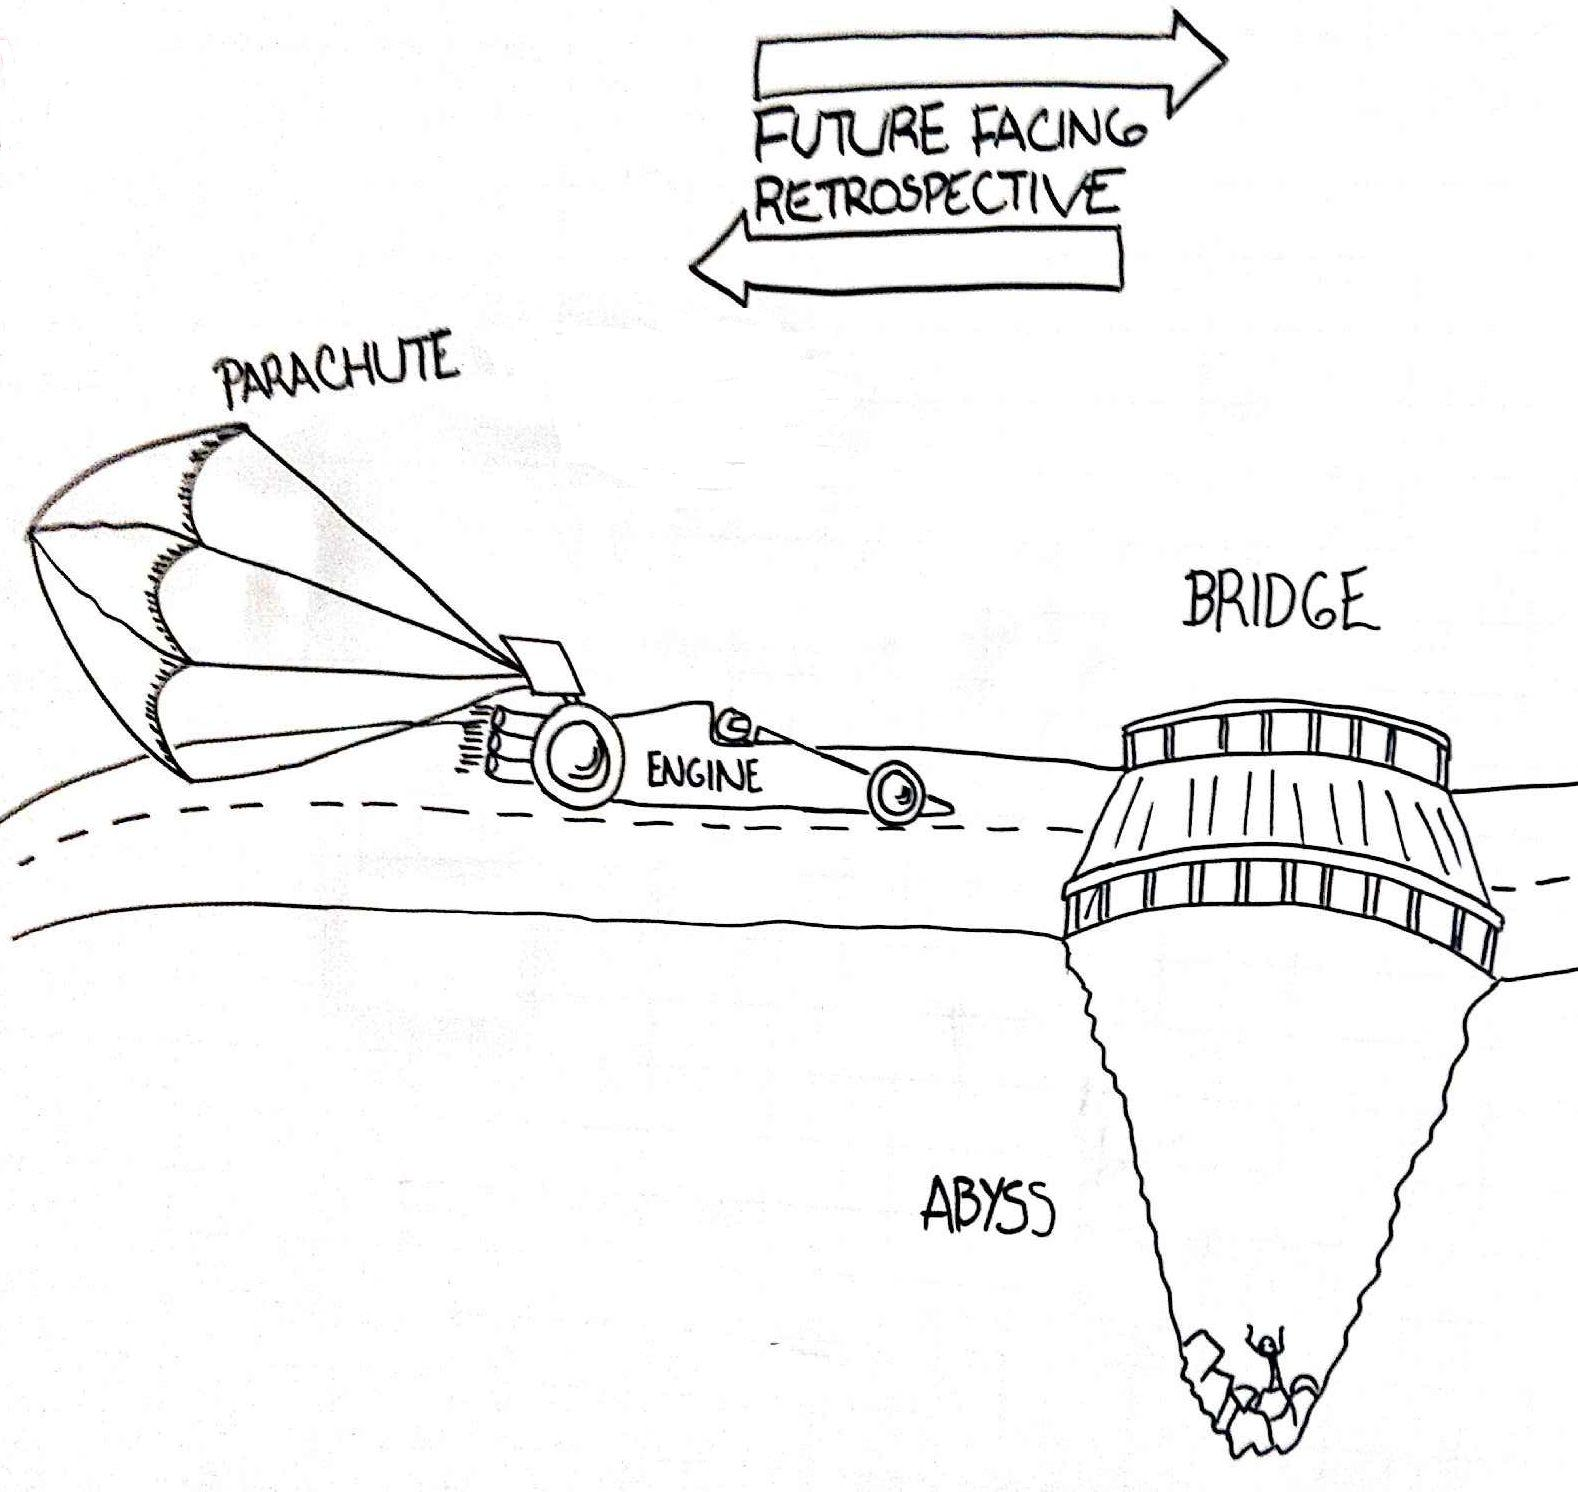 FUTURE FACING
RETROSPECTIVE
PARACHUTE
BRIDGE
ENGINE
ABYSS